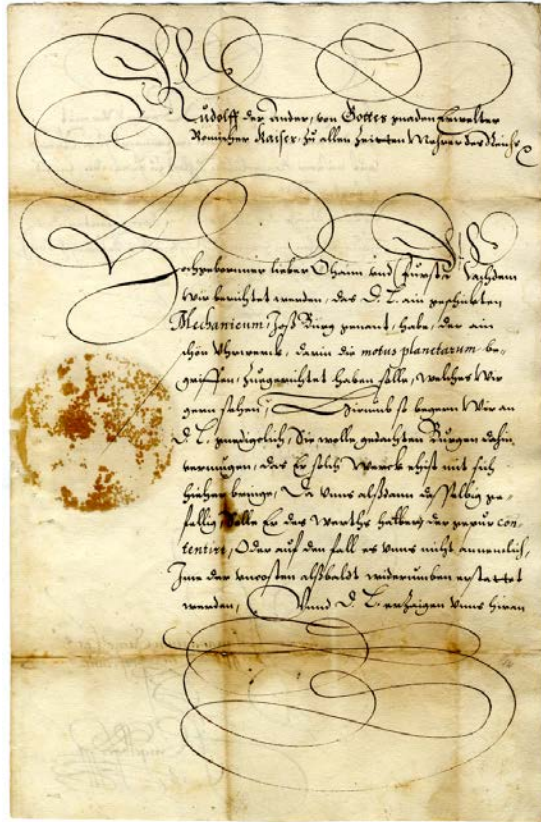 Rudolff der Ander, von Gottes gnaden Erwelter
Romischer Kaiser, zu allen Zeitten Mehrer des Reichs
Hochgebornner lieber Ohaim vnd Fürst, Nachdem
Wir berichtet werden, das D. L. ain geschickten
Mechanicum, Jost Burg genant, habe, der ain
schön Vhrwerck, darin die motus planetarum be-
griffen, zuegerichtet haben solle, welches Wir
gern sehen, Hierumb so begern Wir an
D. L. gnediglich, Sie wolle gedachten Burgen dahin
vermugen, das Er solch Werck ehist mit sich
hieher bringe, Da vnns alßdann dasselbig ge-
fellig, Solle Er des Werths halber, der gepur con-
tentirt, Oder auf den fall es vnns nicht annemlich,
Ime der vncosten alßbaldt widerumben erstattet
werden, Vnnd D. L. erzaigen vnns hieran